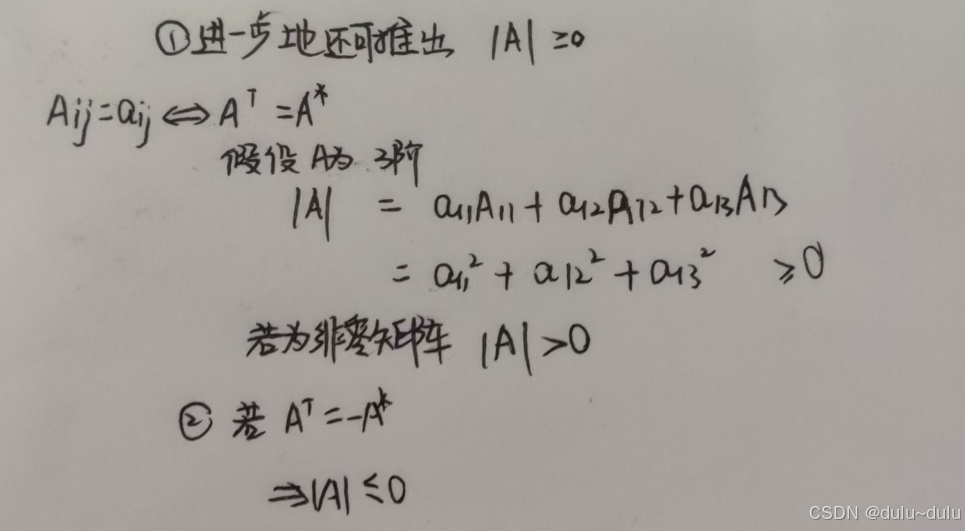 ①进一步地还可推出 |A| ≥0
Aij=aij⇔A^T=A^*
假设A为3阶
|A| = a11A11+a12A12+a13A13
= a11²+a12²+a13² ≥0
若为非零矩阵 |A|>0
② 若 A^T=-A^*
⇒|A|≤0
CSDN @dulu~dulu